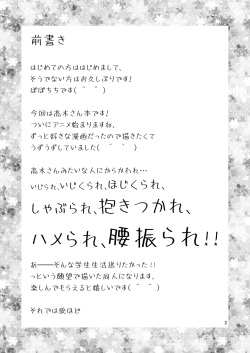 前書き
はじめての方ははじめまして、
そうでない方はお久しぶりです！
ぽぽちちです(　＾　＾　)
今回は高木さん本です！
ついにアニメ始まりますね、
ずっと好きな漫画だったので描きたくて
うずうずしていました(　＾　＾　)
高木さんみたいな人にからかわれ…
いじられ、いじくられ、ほじくられ、
しゃぶられ、抱きつかれ、
ハメられ、腰振られ!!
あ――そんな学生生活送りたかった!!
っという願望で描いた同人になります、
楽しんでもらえると嬉しいです(　＾　＾　)
それでは後ほど
3